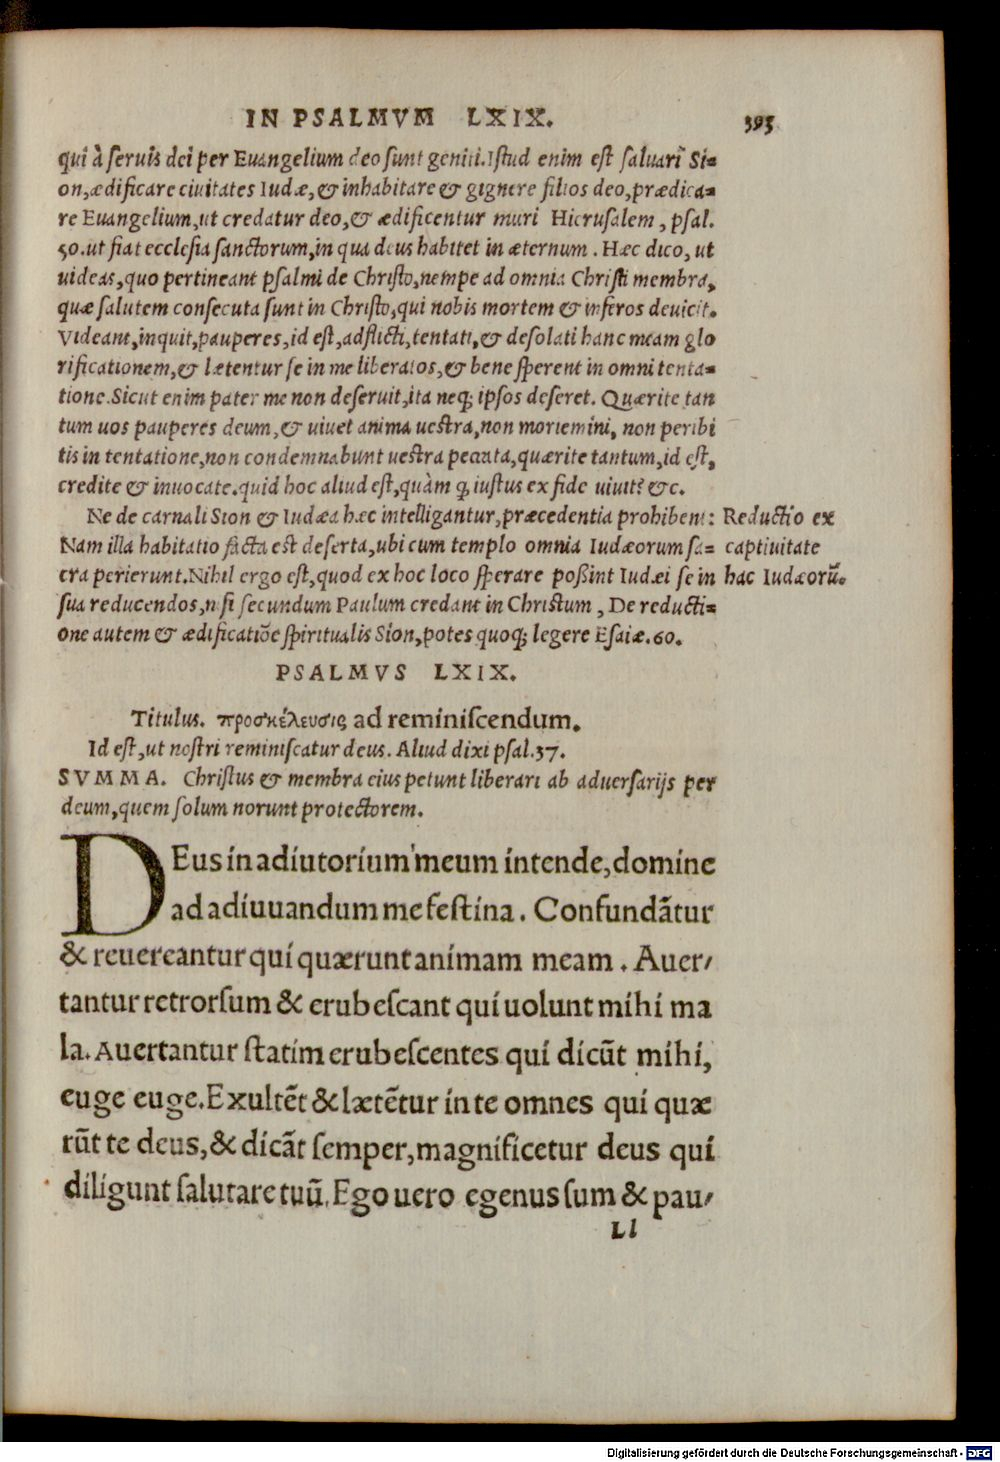 IN PSALMVM LXIX. 393
qui à seruis dei per Euangelium deo sunt geniti. Istud enim est saluari Si=
on, ædificare ciuitates Iudæ, & inhabitare & gignere filios deo, prædica=
re Euangelium, ut credatur deo, & ædificentur muri Hierusalem, psal.
50. ut fiat ecclesia sanctorum, in qua deus habitet in æternum. Hæc dico, ut
uideas, quo pertineant psalmi de Christo, nempe ad omnia Christi membra,
quæ salutem consecuta sunt in Christo, qui nobis mortem & inferos deuicit.
Videant, inquit, pauperes, id est, adflicti, tentati, & desolati hanc meam glo
rificationem, & lætentur se in me liberatos, & bene sperent in omni tenta=
tione. Sicut enim pater me non deseruit, ita neq; ipsos deseret. Quærite tan
tum uos pauperes deum, & uiuet anima uestra, non moriemini, non peribi
tis in tentatione, non condemnabunt uestra peccata, quærite tantum, id est,
credite & inuocate. quid hoc aliud est, quàm q; iustus ex fide uiuit? &c.
Ne de carnali Sion & Iudæa hæc intelligantur, præcedentia prohibent: Reductio ex
Nam illa habitatio facta est deserta, ubi cum templo omnia Iudæorum sa= captiuitate
cra perierunt. Nihil ergo est, quod ex hoc loco sperare possint Iudæi se in hac Iudæorũ.
sua reducendos, nisi secundum Paulum credant in Christum, De reducti=
one autem & ædificatiõe spiritualis Sion, potes quoq; legere Esaiæ. 60.
PSALMVS LXIX.
Titulus. προσκέλευσις ad reminiscendum.
Id est, ut nostri reminiscatur deus. Aliud dixi psal. 37.
SVMMA. Christus & membra eius petunt liberari ab aduersarijs per
deum, quem solum norunt protectorem.
DEus in adiutorium meum intende, domine
ad adiuuandum me festina. Confundãtur
& reuereantur qui quærunt animam meam. Auer/
tantur retrorsum & erubescant qui uolunt mihi ma
la. Auertantur statim erubescentes qui dicũt mihi,
euge euge. Exultẽt & lætẽtur in te omnes qui quæ
rũt te deus, & dicãt semper, magnificetur deus qui
diligunt salutare tuũ. Ego uero egenus sum & pau/
Ll
Digitalisierung gefördert durch die Deutsche Forschungsgemeinschaft - DFG